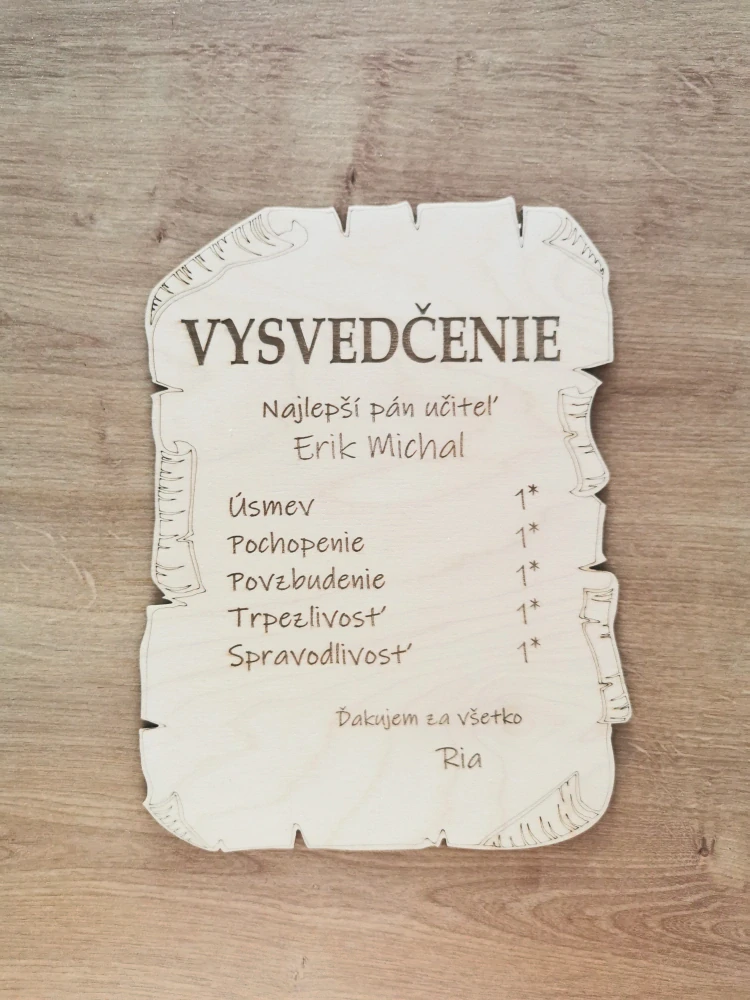 VYSVEDČENIE
Najlepší pán učiteľ
Erik Michal
Úsmev 1*
Pochopenie 1*
Povzbudenie 1*
Trpezlivosť 1*
Spravodlivosť 1*
Ďakujem za všetko
Ria